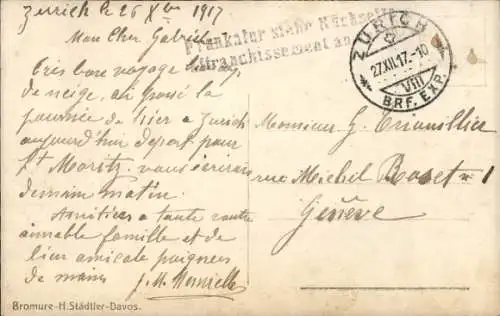 Zurich le 26 Xbre 1917
Mon Cher Gabriel
Très bon voyage
de neige, ai passé la
journée de hier a Zurich
aujourd'hui depart pour
St Moritz, vous écrirai
demain matin.
Amitiés a toute votre
aimable famille et de
bien amicale poignées
de mains J. M.
Frankatur siehe Rückseite
Affranchissement au
ZÜRICH
27.XII.17.-10
VIII
BRF. EXP.
Monsieur G.
rue Michel Roset No 1
Genève
Bromure-H.Städtler-Davos.